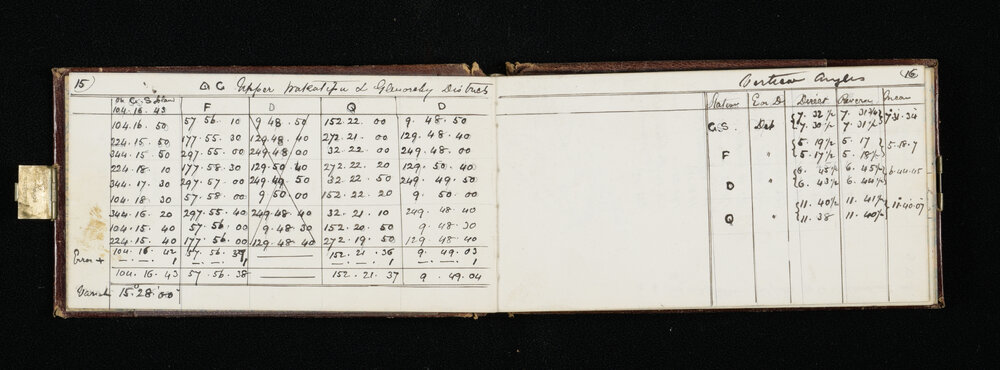 15
△ G Upper Wakatipu & Glenorchy District
on G.S.
104.16.43 F D Q D
104.16.50 57.56.10 9.48.50 152.22.00 9.48.50
224.15.50 177.55.30 129.48.40 272.21.00 129.48.40
344.15.50 297.55.00 249.48.00 32.22.00 249.48.00
224.18.10 177.58.30 129.50.40 272.22.20 129.50.40
344.17.30 297.57.00 249.49.50 32.22.50 249.49.50
104.18.30 57.58.00 9.50.00 152.22.20 9.50.00
344.16.20 297.55.40 249.48.40 32.21.10 249.48.40
104.15.40 57.56.00 9.48.30 152.20.50 9.48.30
224.15.40 177.56.00 129.48.40 272.19.50 129.48.40
104.16.42 57.56.39 152.21.36 9.49.03
Error + 1 1 1 1
104.16.43 57.56.38 152.21.37 9.49.04
15°28'00"
16
Vertical Angles
Station E or D Direct Reverse Mean
G.S. Dep 7.32½ 7.31¾ 7.31.34
7.30½ 7.31½
F " 5.19½ 5.17 5.18.7
5.17½ 5.18½
D " 6.45½ 6.45½ 6.44.45
6.43½ 6.44½
Q " 11.40½ 11.41½ 11.40.07
11.38 11.40½